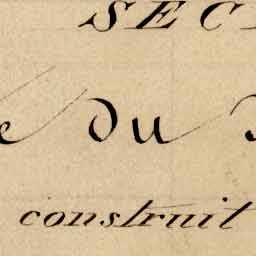 SEC
e du
construit